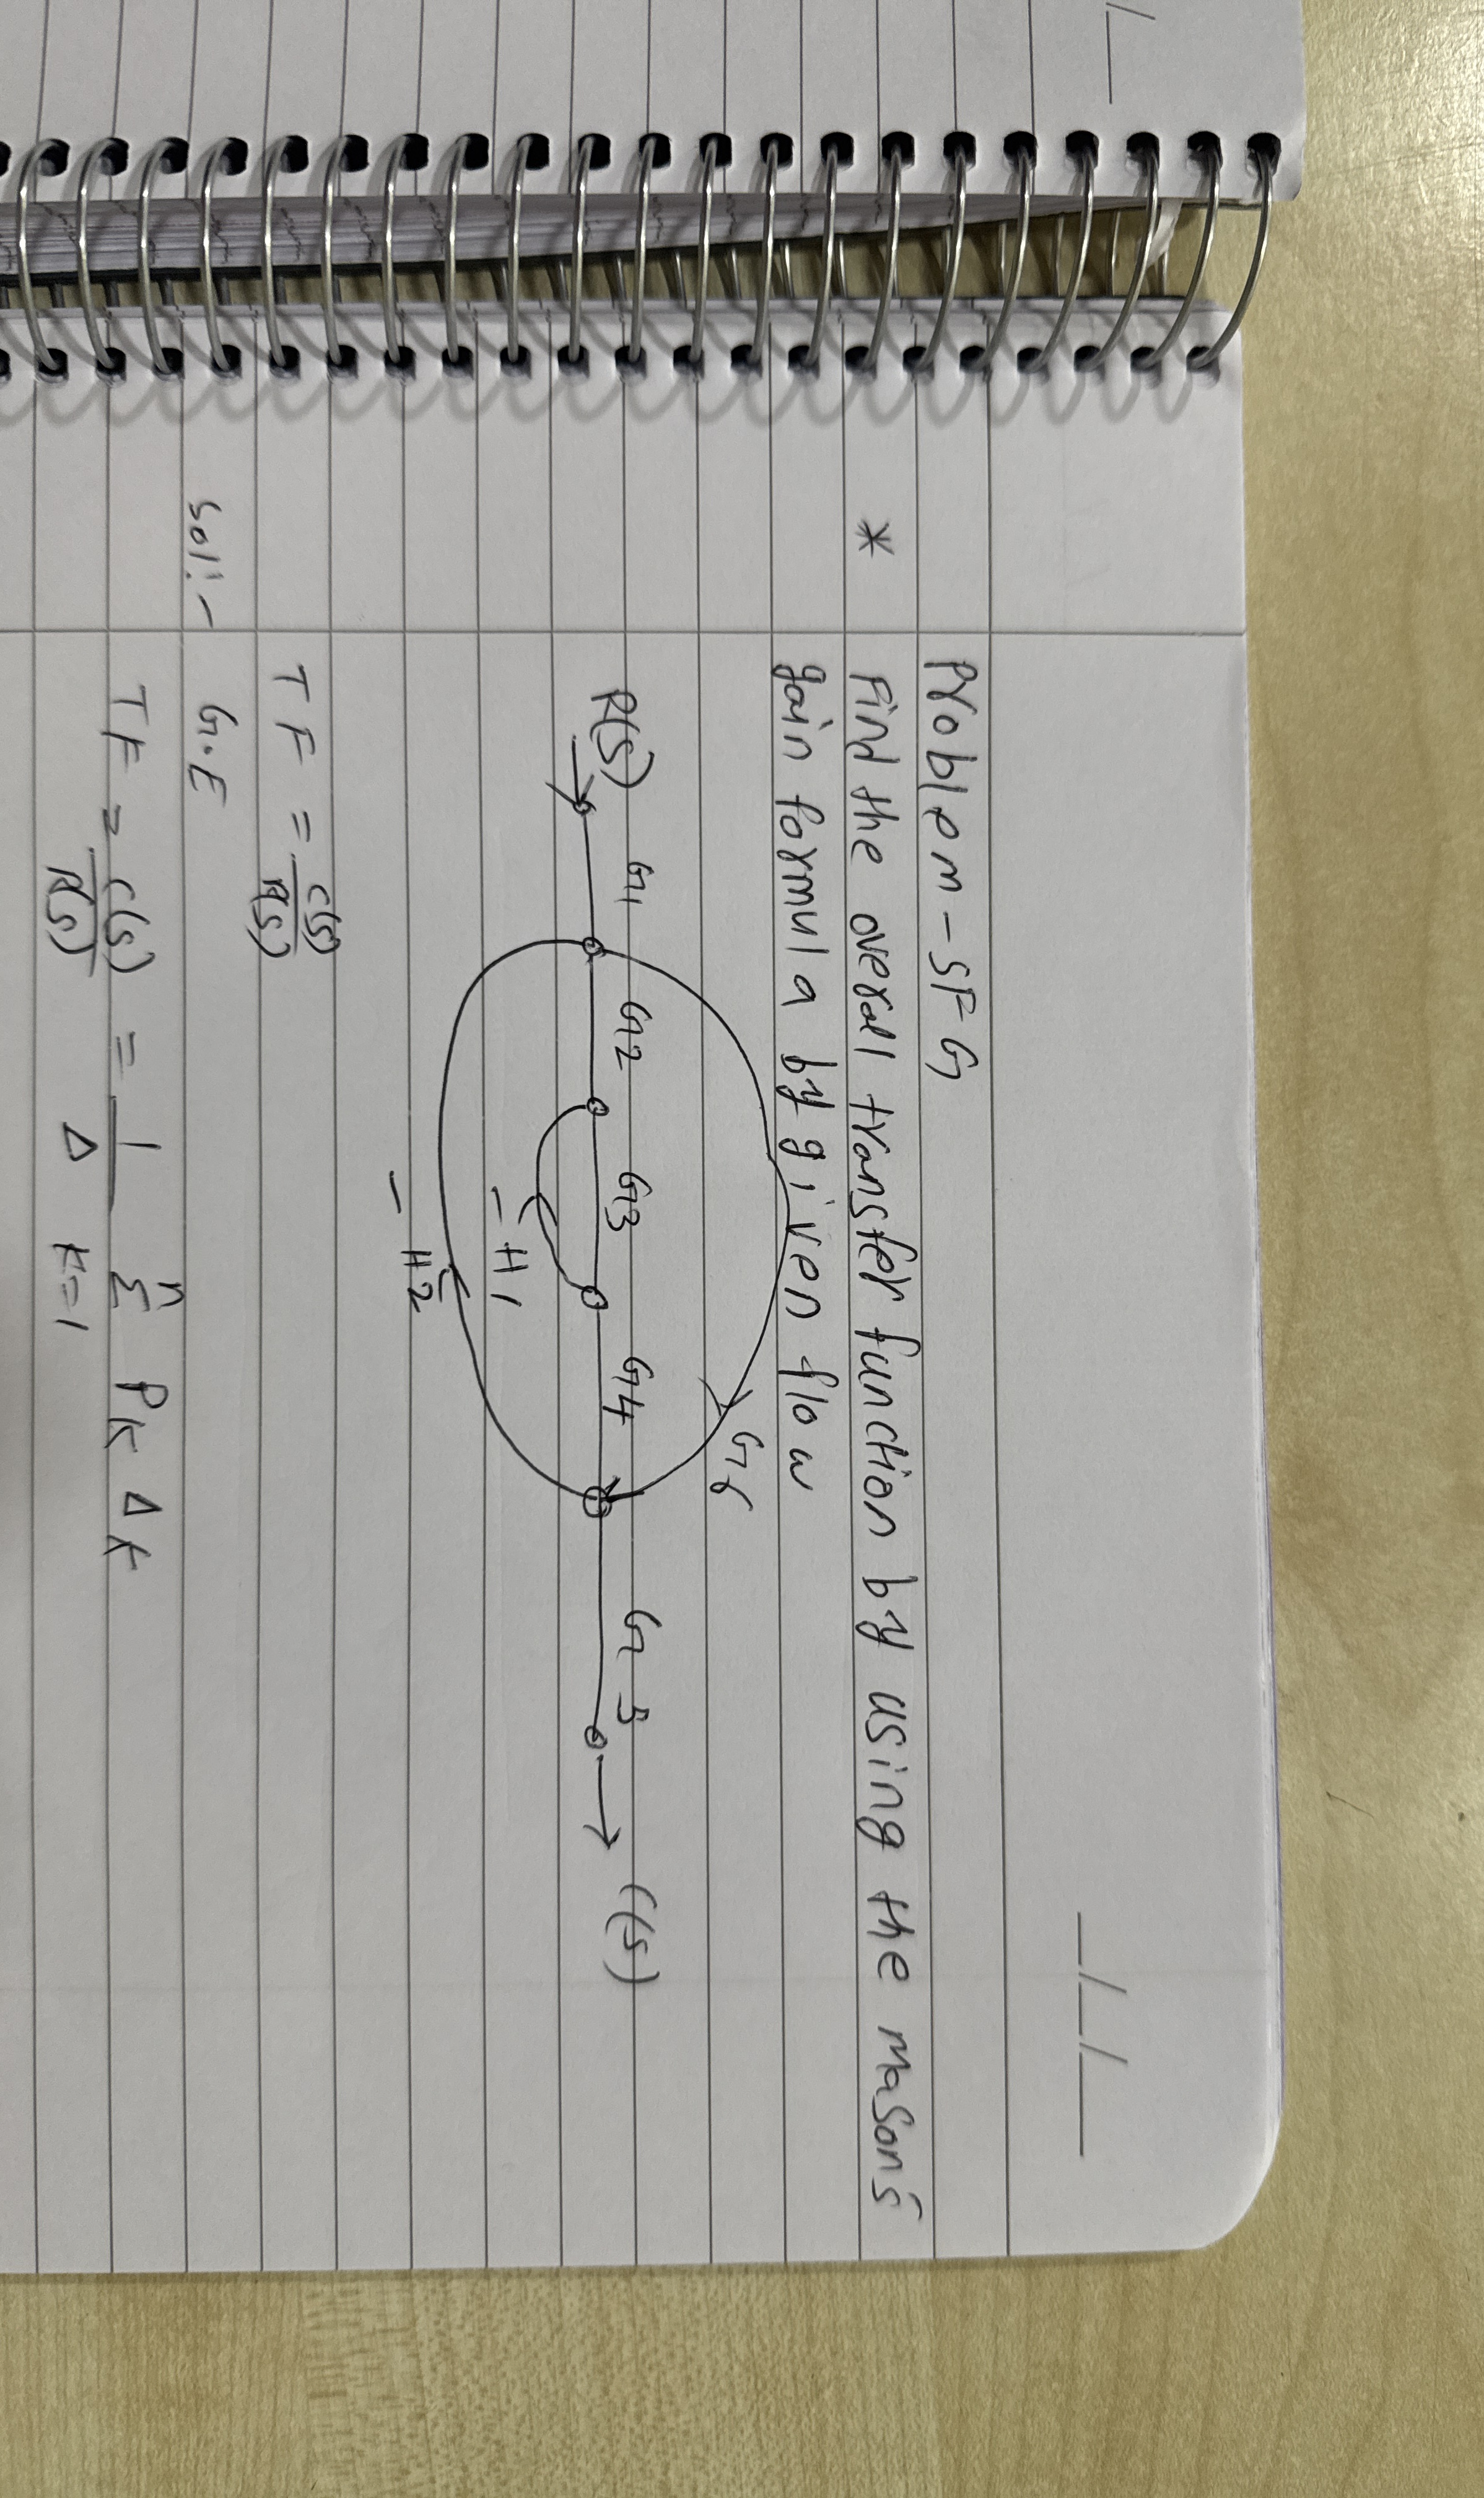 _/_/_
Problem - SFG
* Find the overall transfer function by using the mason's
gain formula by given flow
G6
R(s) G1 G2 G3 G4 G5 C(s)
-H1
-H2
TF = C(s)/R(s)
Sol:- G.E
TF = C(s)/R(s) = 1/Δ n Σ K=1 PK ΔK